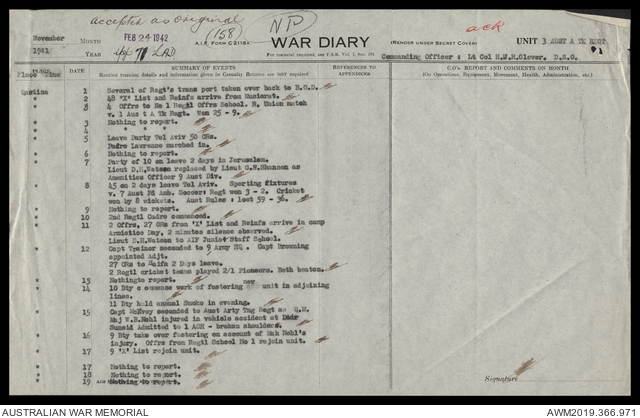 Accepted as Original
(158)
NP
ack
November MONTH FEB 24 1942 A.I.F. FORM C2118A WAR DIARY (RENDER UNDER SECRET COVER) UNIT 3 AUST A TK REGT
1941 YEAR 71 LAD
Commanding Officer : Lt Col H.W.M.Glover. D.S.O.
PLACE TIME SUMMARY OF EVENTS REFERENCES TO APPENDICES C.O's. REPORT AND COMMENTS ON MONTH
Place Time Routine training details and information given in Casualty Returns are NOT required (On Operations, Equipment, Movement, Health, Administration, etc.)
Qastina 1 Several of Regt's trans port taken over back to B.O.D.
" 2 48 'X' List and Reinfs arrive from
" 3 4 Offrs to No 1 Regtl Offrs School. R. Union match
v. 1 Aust A Tk Regt. Won 25 - 9.
" 3 Nothing to report.
" 4 " " "
" 5 Leave Party Tel Aviv 50 ORs.
Padre Lawrence marched in.
" 6 Nothing to report.
" 7 Party of 10 on leave 2 days in Jerusalem.
Lieut D.H.Watson replaced by Lieut G.H.Shannon as
Amenities Officer 9 Aust Div.
" 8 45 on 2 days leave Tel Aviv. Sporting fixtures
v. 7 Aust Fd Amb. Soccer: Regt won 3 - 2. Cricket
won by 8 wickets. Aust Rules : lost 59 - 36.
" 9 Nothing to report.
" 10 2nd Regtl Cadre commenced.
" 11 2 Offrs, 27 ORs from 'X' List and Reinfs arrive in camp
Armistice Day, 2 minutes silence observed.
Lieut D.H.Watson to AIF Junior Staff School.
" 12 Capt Trainor seconded to 9 Army HQ. Capt Browning
appointed Adjt.
27 ORs to Haifa 2 Days leave.
2 Regtl cricket teams played 2/1 Pioneers. Both beaten.
" 13 Nothingto report.
" 14 10 Bty commence work of fostering new unit in adjoining
lines.
11 Bty hold annual Smoko in evening.
" 15 Capt McEvoy seconded to Aust Arty Tng Regt as Q.M.
Maj W.B.Nehl injured in vehicle accident at Deir
Suneid Admitted to 1 AGH - broken shoulders.
" 16 9 Bty take over fostering on account of Maj Nehl's
injury. Offrs from Regtl School No 1 rejoin unit.
" 17 9 'X' List rejoin unit.
" 17 Nothing to report.
" 18 Nothing to report.
" 19 Nothing to report.
Signature
AUSTRALIAN WAR MEMORIAL AWM2019.366.971